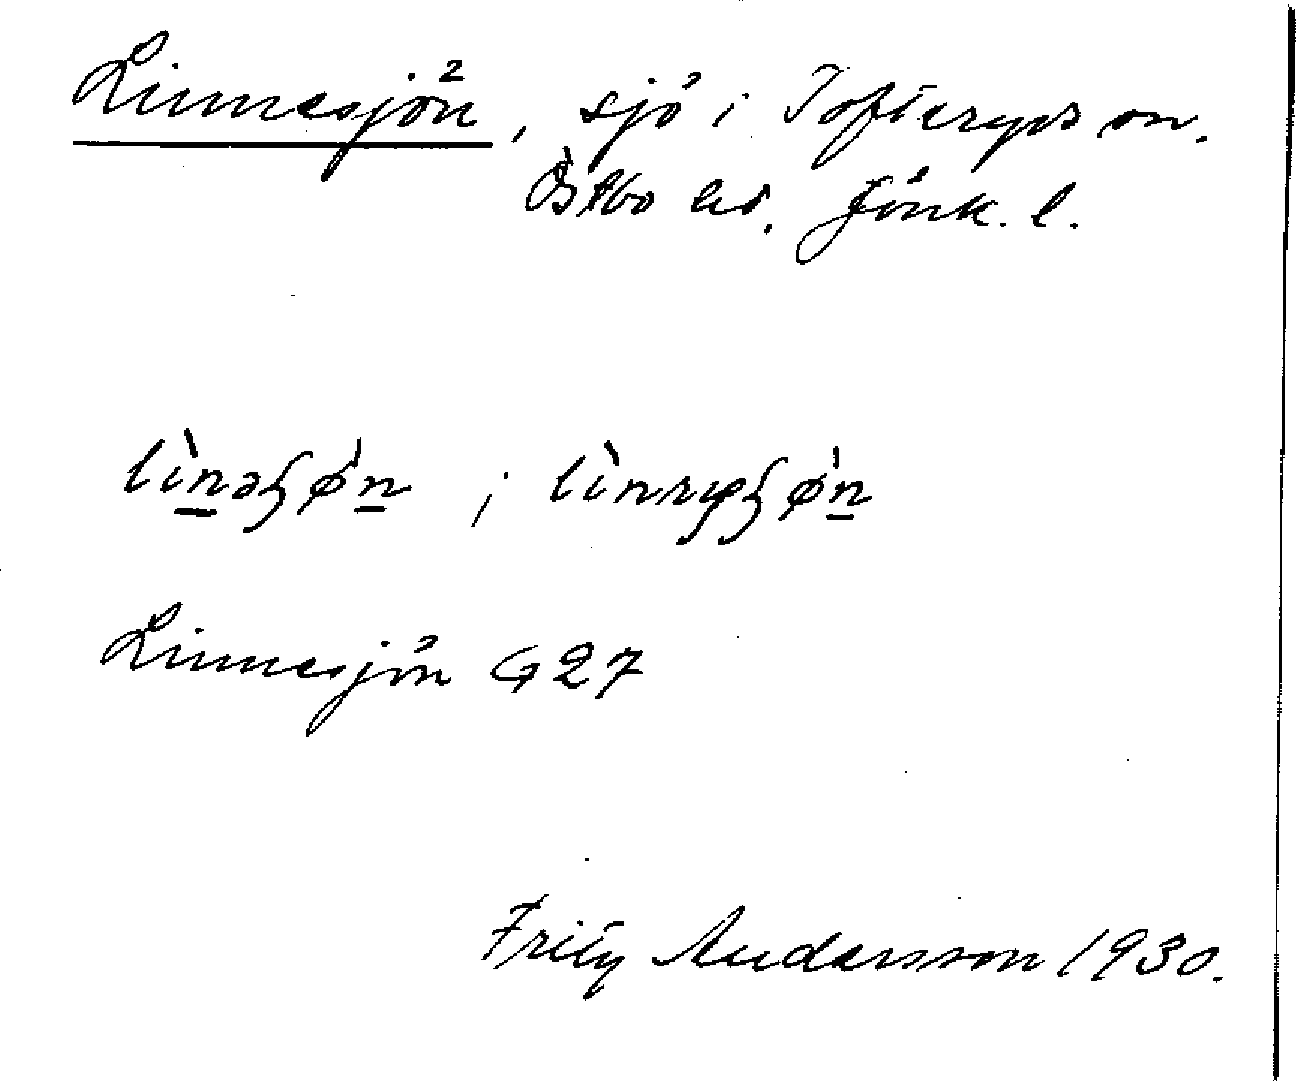 Linnesjön, sjö i Tofteryds sn.
Östbo hd. Jönk. l.
lìn̠əɧǿn̠ ; lìnryɧǿn̠
Linnesjön G 27
Fritz Andersson 1930.